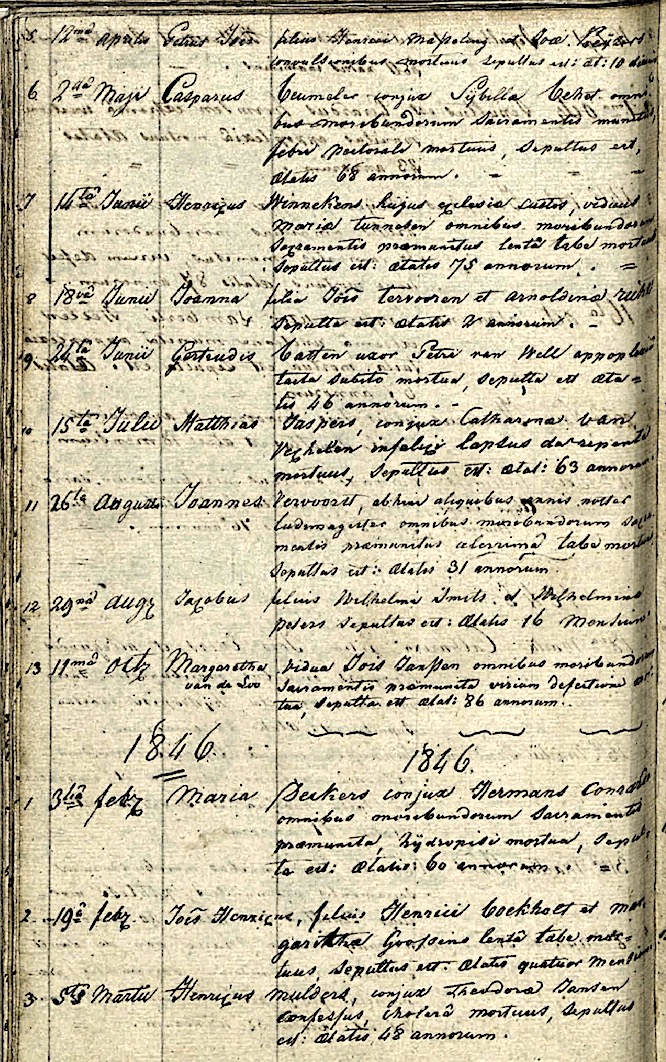 5 12ma aprilis Petrus Joês filius Henrici et Joæ
convulsionibus mortuus sepultus est: æt: 10
6 2da Maji Casparus Ceumelec conjux Sybilla omni
bus moribundorum Sacramentis munitus,
febri pectorale mortuus, Sepultus est,
ætatis 68 annorum.
7 14ta Junii Henricus Winnekens hujus eclesiæ custos, viduus
Mariæ tunnesen omnibus moribundorum
Sacramentis præmunitus lentâ tabe mortuus
Sepultus est: ætatis 75 annorum.
8 18va Junii Joanna filia Joîs tervooren et arnoldinæ
Sepulta est: ætatis 2 annorum.
9 24ta Junii Gertrudis Catten uxor Petri van Well
tacta subito mortua, sepulta est æta=
tis 46 annorum.
10 15ta Julii Matthias Jaspers, conjux Catharinæ van
Veghelen infelix lapsus de repente
mortuus, Sepultus est: ætat: 63 annorum
11 26ta Augusti Joannes Vervoorst, abhinc aliquebus annis noster
ludemagister omnibus moribundorum Sacra
mentis præmunitus celerrimâ tabe mortuus
Sepultus est: ætatis 31 annorum
12 29na augz Jacobus filius Wilhelmi Smits et Wilhelmina
peters Sepultus est: ætatis 16 Mensium
13 11ma octz Margaretha vidua Joîs Janssen omnibus moribundorum
van de Loo Sacramentis præmunita virium defectione
sepulta est ætat: 86 annorum.
1846. 1846.
1 3tia febz Maria Beckers conjux Hermans
omnibus moribundorum Sacramentis
præmunita, hÿdropisi mortua, Sepul
ta est: ætatis: 60 annorum
2 19â febz Joîs Henricus, filius Henrici Cockholt et mar
garitha Goossens lentâ tabe mor=
tuus, Sepultus est. ætatis quatuor mensium
3 5ta Martii Henricus Mulders, conjux Theodoræ Jansen
confessus, cholerâ mortuus, Sepultus
est: ætatis 48 annorum.